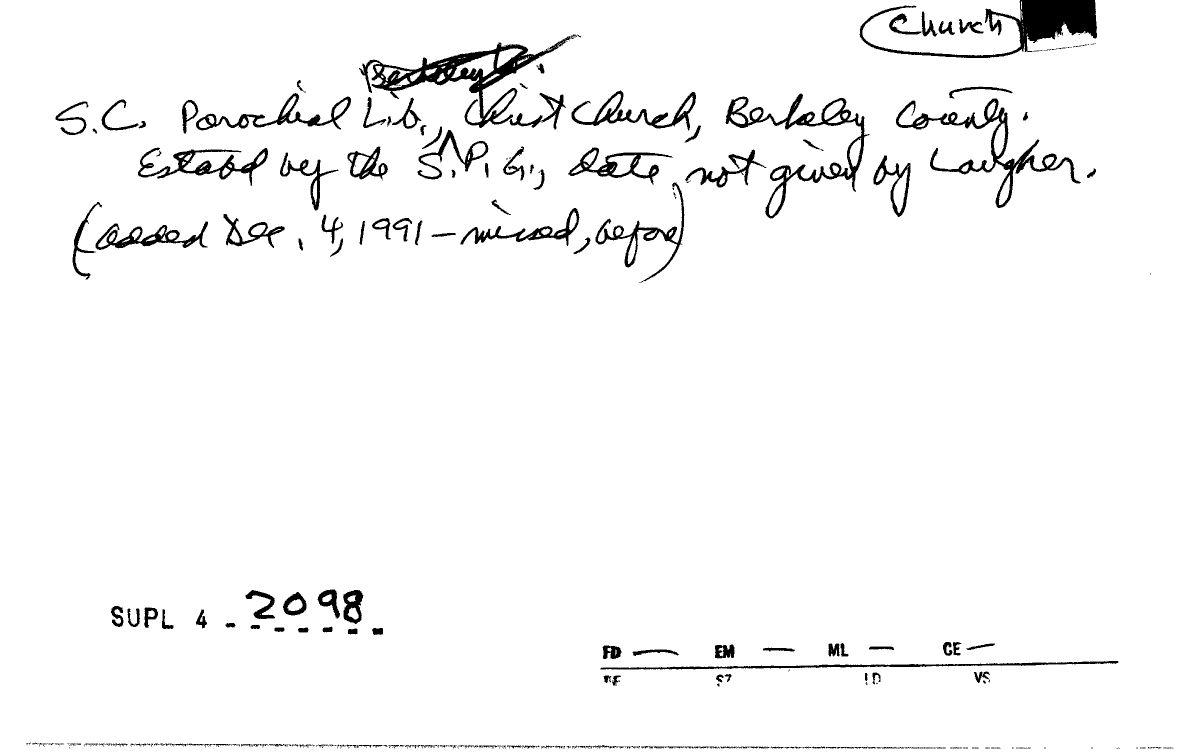 Church
S.C. Parochial Lib., Christ Church, Berkeley County.
Estabd by the S.P.G., date not given by Laugher.
(added Dec. 4, 1991 - missed, before)
SUPL 4 - 2098
FD — EM — ML — CE —
VS